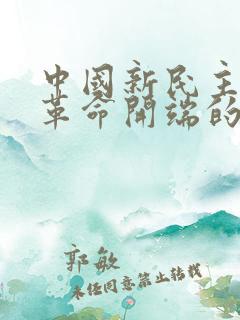 中國新民主
革命開端的
郭敏
未经同意禁止转载